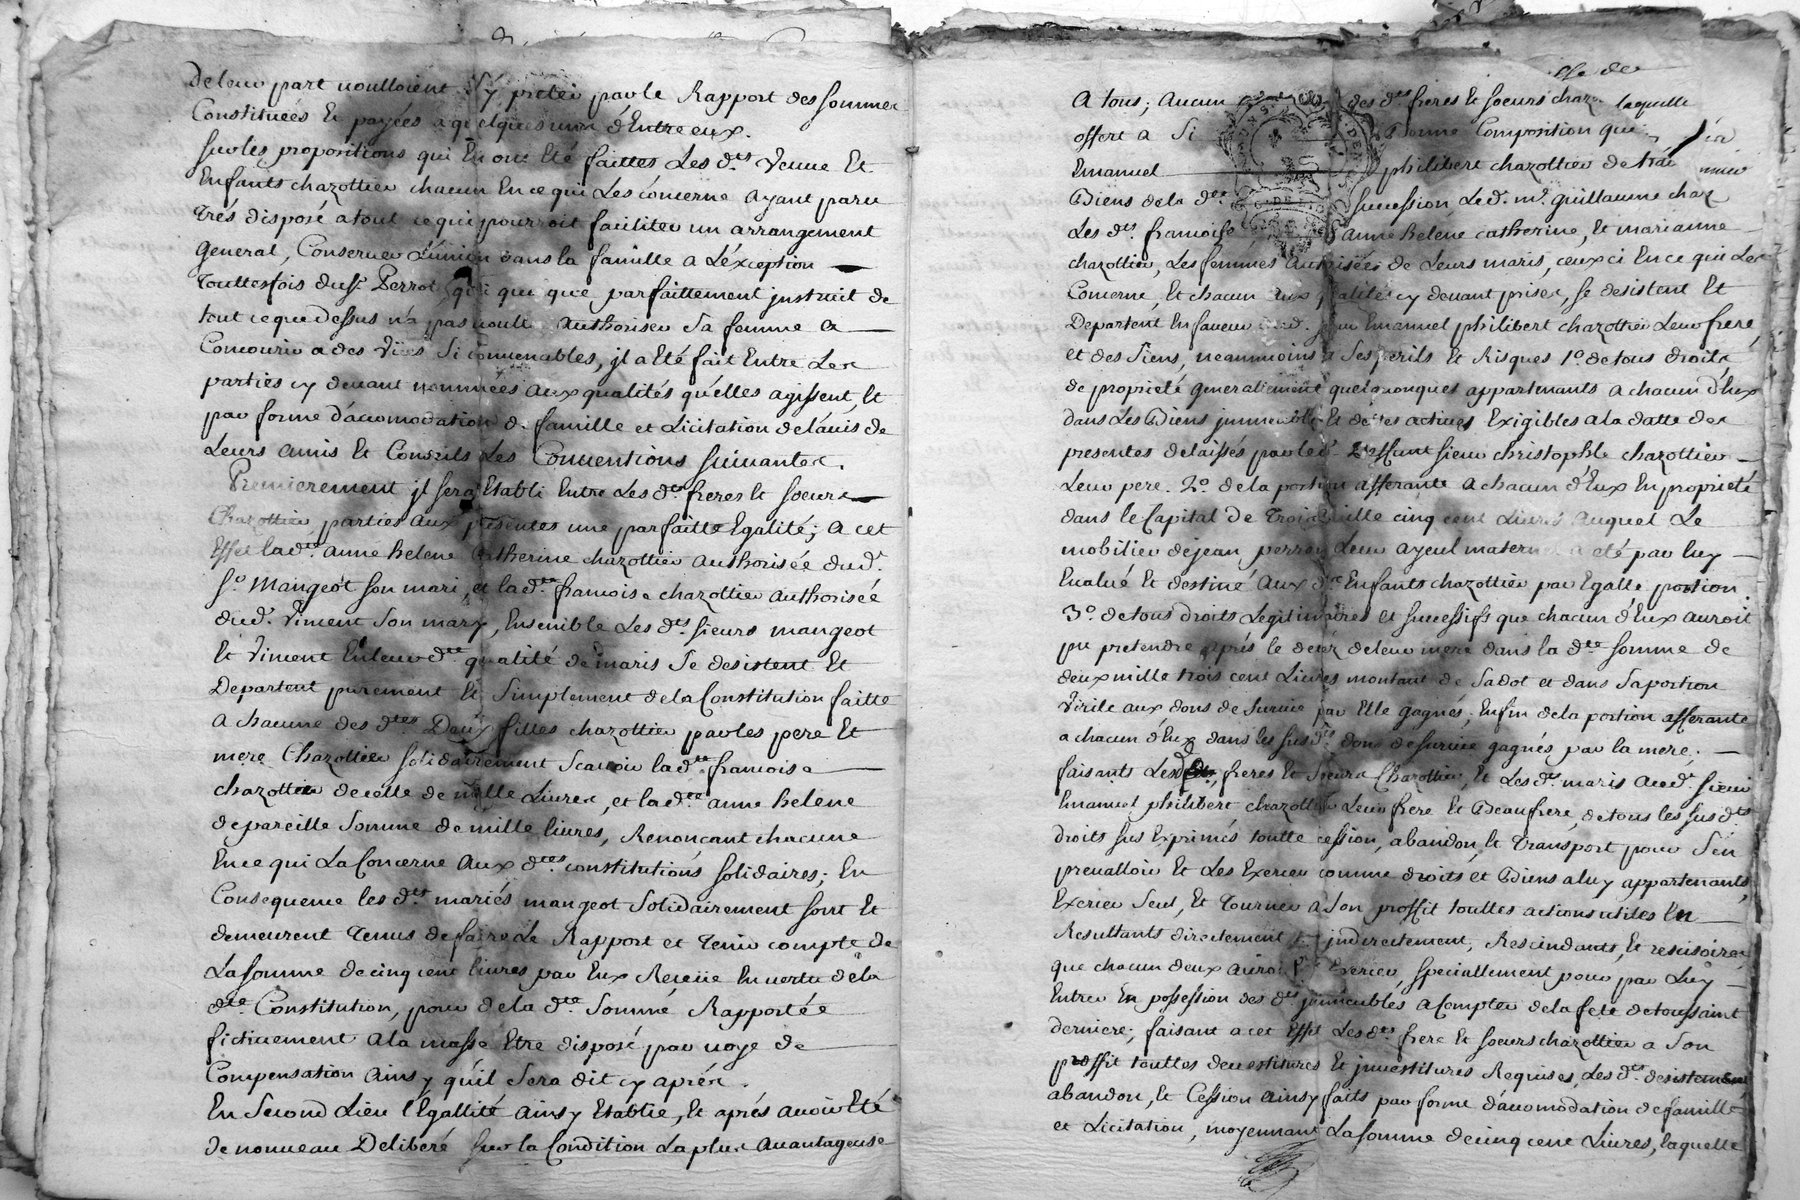 de leur part voulloient s'y preter par le Rapport des sommes
Constituées Et payées a quelques uns d'Entre eux.
sur les propositions qui En ont Eté faittes Les dts. Veuve Et
Enfants chazottier chacun En ce qui Les concerne ayant paru
Trés disposé a tout ce qui pourroit faciliter un arrangement
general, Conserver L'union dans la famille a L'éxception
Touttesfois du sr. Perrot qui quoique parfaittement instruit de
tout ce que dessus n'a pas voulu authoriser Sa femme a
Concourir a des Vües Si convenables, jl a Eté fait Entre Les
parties cy devant nommées aux qualités qu'elles agissent, Et
par forme d'accomodation de famille et Licitation de l'avis de
Leurs amis Et Conseils Les Conventions suivantes.
Premierement jl sera Etabli Entre Les dts. freres Et soeurs
Chazottier parties aux présentes une parfaitte Egalité; a cet
Effet la dte. anne helene Catherine chazottier authorisée dud.
sr. Mangeot son mari, et la dte. francoise chazottier authorisée
dud. Viment Son mary, Ensemble Les dts. sieurs mangeot
Et Viment En leur dte. qualité de maris Se desistent Et
Departent purement Et Simplement de la Constitution faitte
a chacune des dtes. Deux filles chazottier par les pere Et
mere Chazottier solidairement Scavoir la dte. francoise
chazottier de celle de mille Livres, et la dte. anne helene
de pareille Somme de mille livres, Renonçant chacune
En ce qui La Concerne aux dtes. constitutions solidaires; En
Consequence les dts. mariés mangeot Solidairement sont Et
demeurent Tenus de faire Le Rapport et Tenir compte de
La somme de cinq cent livres par Eux Receüe En vertu de la
dte. Constitution, pour de la dte. Somme Rapportée
fictivement a la masse Etre disposé par voye de
Compensation ainsy qu'il Sera dit cy aprés.
En Second Lieu l'Egallité ainsy Etablie, Et aprés avoir Eté
de nouveau Deliberé sur la Condition La plus avantageuse
a tous; aucun des dts. freres Et soeurs chaz laquelle
offert a Si bonne Composition que
Emanuel philibert chazottier de
Biens de la dte. succession Led. mr. guillaume chaz
Les dts. francoise anne helene catherine, Et marianne
chazottier, Les femmes authorisées de Leurs maris, ceux ci En ce qui Les
Concerne, Et chacun aux qualités cy devant prises, se desistent Et
Departent En faveur dud. sieur Emanuel philibert chazottier Leur frere,
et des Siens, neanmoins a Ses perils Et Risques 1º. de tous droits
de proprieté generallement quelquonques appartenants a chacun d'Eux
dans Les Biens immeubles Et dettes actives Exigibles a la datte des
presentes delaissés par led. deffunt sieur christophle chazottier
Leur pere. 2º. de la portion afferante a chacun d'Eux En proprieté
dans le Capital de Trois mille cinq cent Livres auquel Le
mobilier de jean perrot Leur ayeul maternel a eté par luy
Evalué Et destiné aux dts. Enfants chazottier par Egalle portion.
3º. de tous droits Legitimaires et successifs que chacun d'Eux auroit
pu pretendre aprés le decéz de leur mere dans la dte. somme de
deux mille trois cent Livres montant de Sa dot et dans Sa portion
Virile aux dons de Survie par Elle gagnés, Enfin de la portion afferante
a chacun d'Eux dans les susdts. dons de survie gagnés par la mere;
faisants Lesdts. freres Et Soeurs Chazottier, Et Les dts. maris aud. sieur
Emanuel philibert chazottier Leur frere Et Beaufrere, de tous les susdts.
droits sus Exprimés toutte cession, abandon, Et Transport pour S'en
prevalloir Et Les Exercer comme droits et Biens a luy appartenants,
Exercer Seul, Et Tourner a Son proffit touttes actions utiles En
Resultants directement Et jndirectement, Rescindants, Et rescisoires
que chacun deux auroit pu Exercer, specialement pour par Luy
Entrer En possession des dts. jmmeubles a Compter de la fete de toussaint
derniere; faisant a cet Effet Les dts. frere Et soeurs chazottier a Son
proffit touttes devestitures Et jnvestitures Requises, Les dts. desistement
abandon, Et Cession ainsy faits par forme d'accomodation de famille
et Licitation, moyennant La somme de cinq cent Livres, laquelle